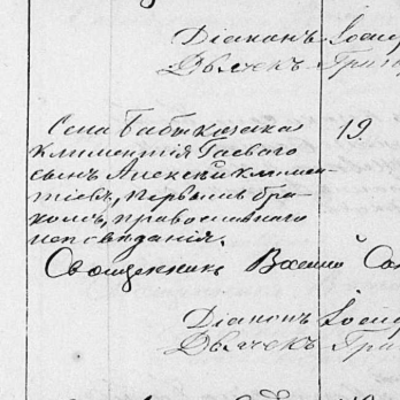 Діаконъ
Дьячекъ
Села Бабт казака 19.
Климентія Гаеваго
сынъ Алексѣй Климен-
тіевъ, первымъ бра-
комъ, православнаго
исповѣданія.
Священникъ Василій
Діаконъ
Дьячекъ